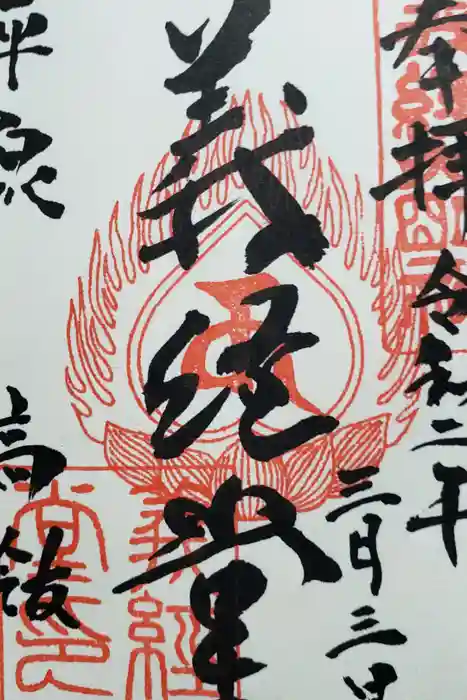 奉拝 令和二年
三月三日
義経堂
平泉 高舘
義経
堂印